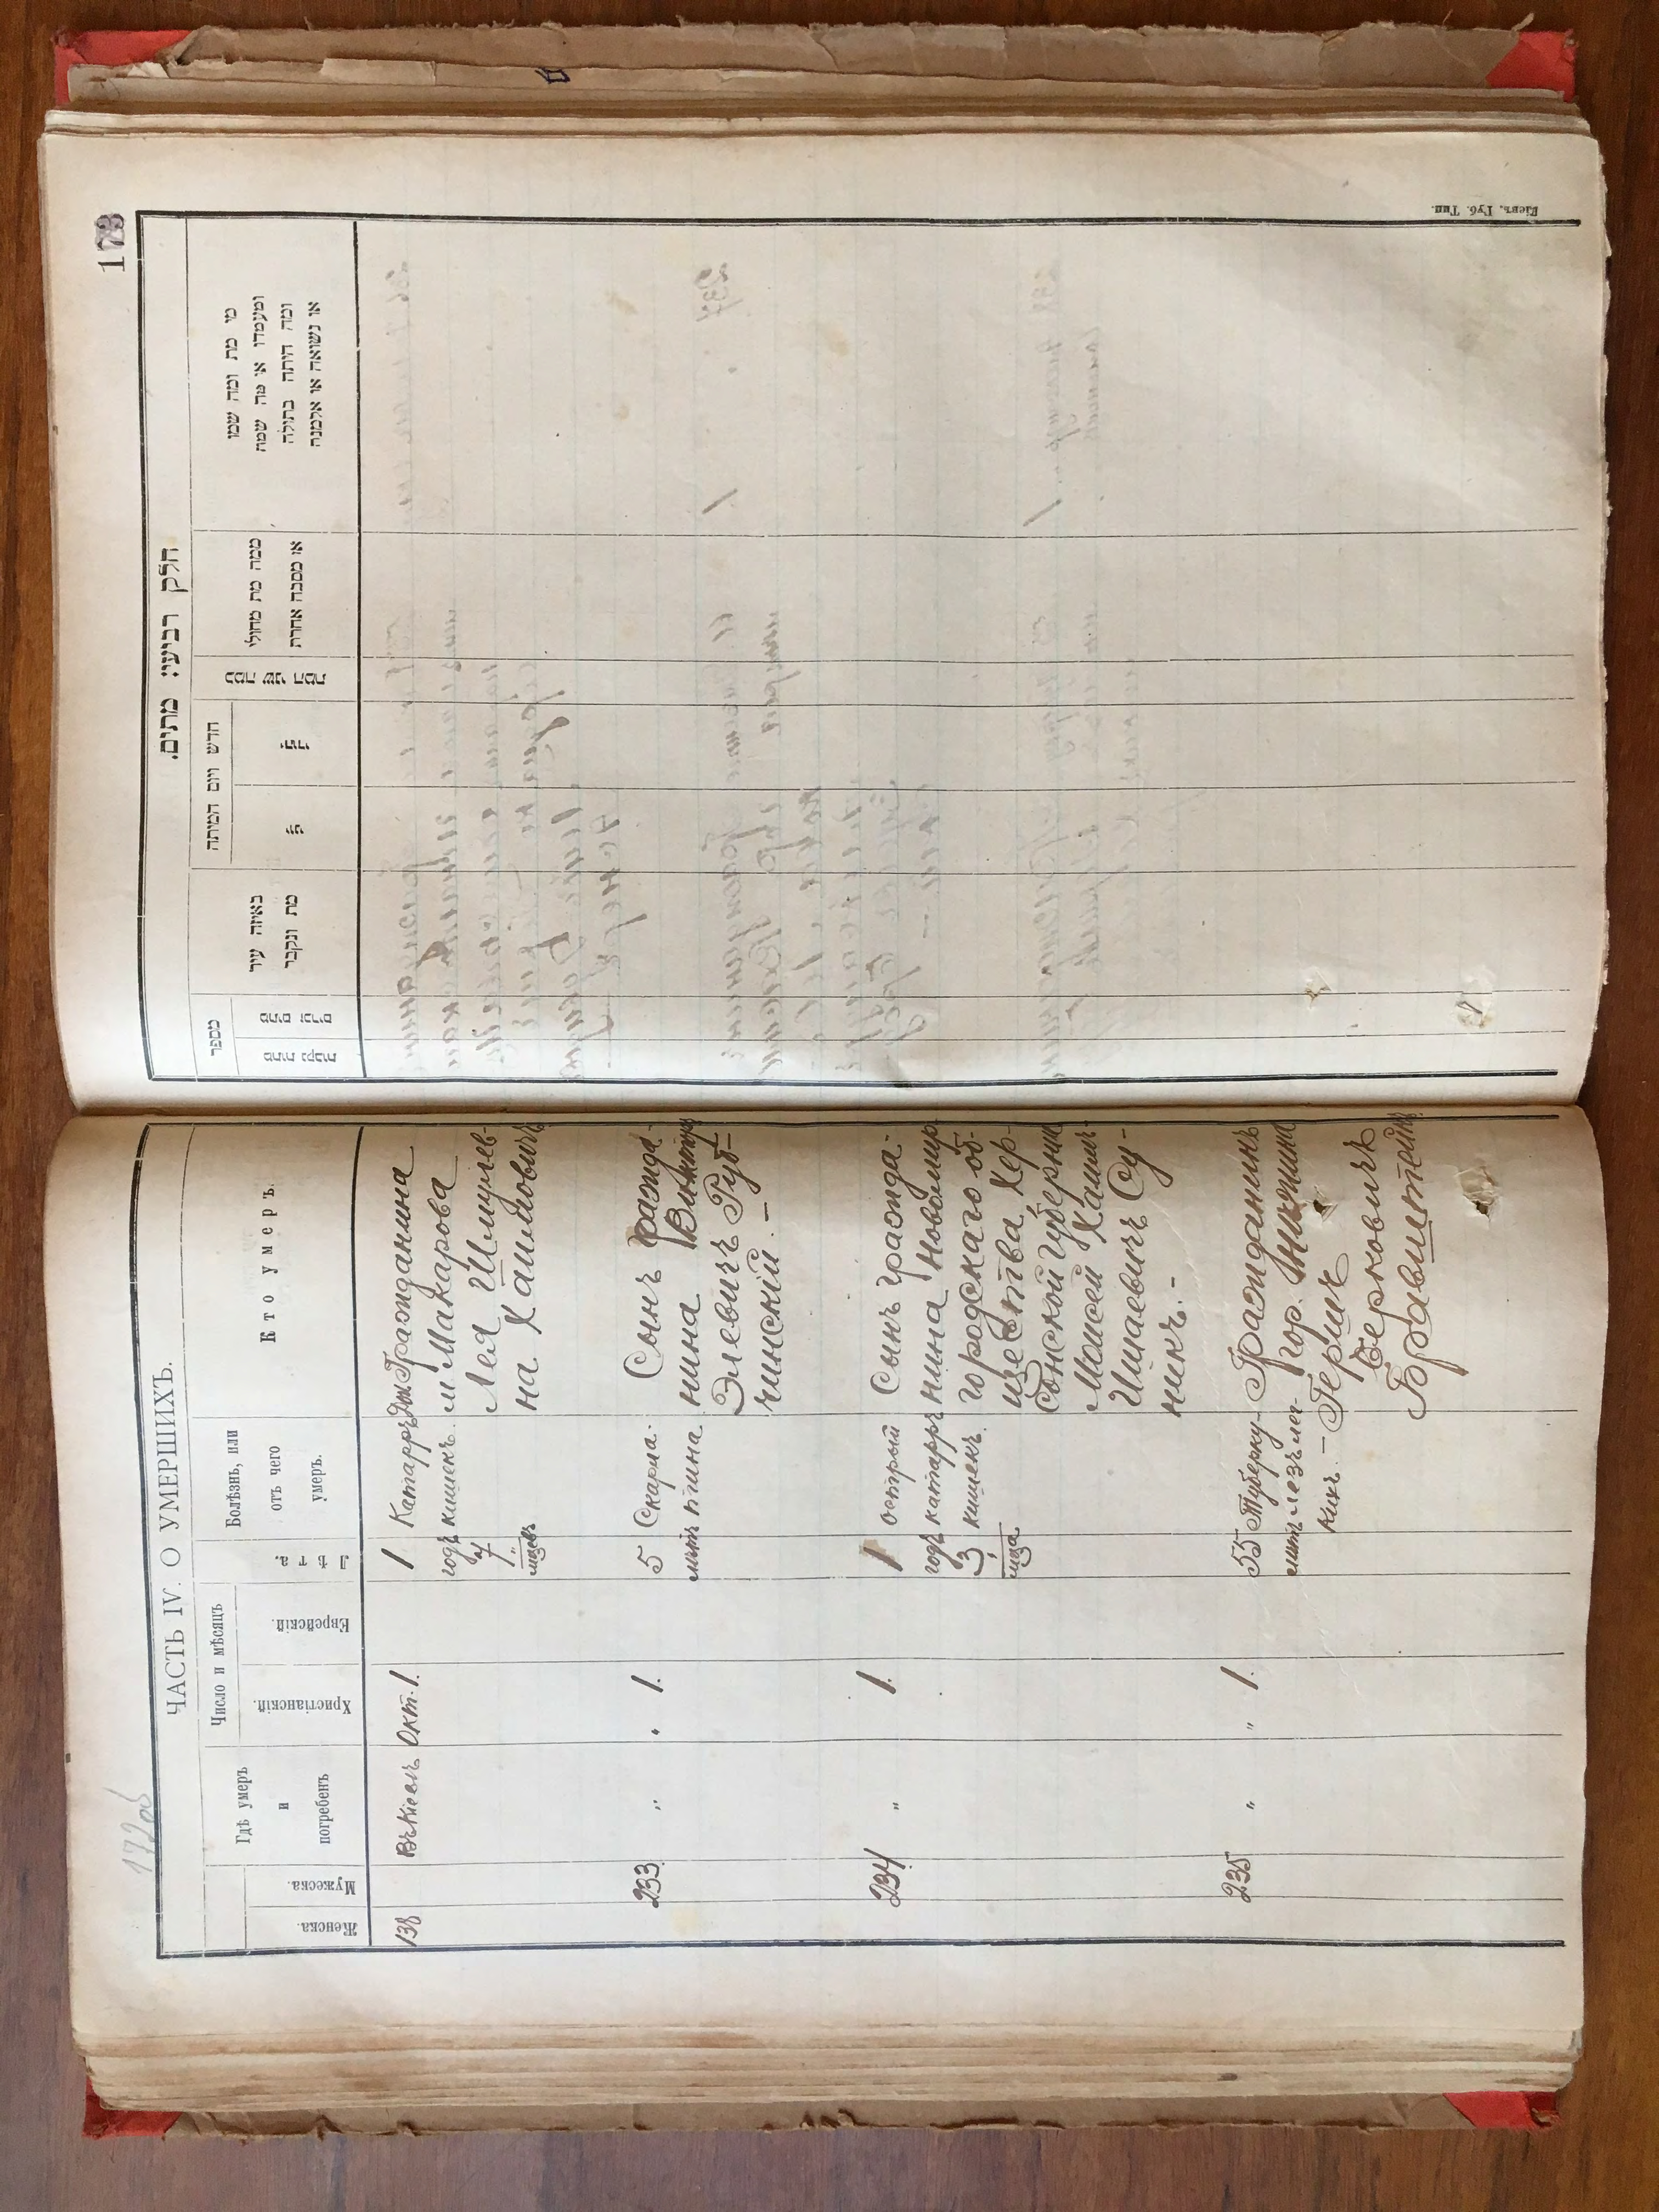 172об
ЧАСТЬ IV. О УМЕРШИХЪ.
Женска.
Мужеска.
Гдѣ умеръ
и
погребенъ
Число и мѣсяцъ
Христіанскій.
Еврейскій.
Лѣта.
Болѣзнь, или
отъ чего
умеръ.
Кто умеръ.
138
Въ Кіевѣ
Окт. 1.
1
годъ
7
мцевъ
Катарръ
кишекъ.
Гражданина
м Макарова
Лея Шмулев-
на Хаимовичъ
233
"
" 1.
5
лѣтъ
Скарла-
тина
Сынъ гражда-
нина
Элевичъ Руб-
чинскій. –
234
"
1.
1
годъ
3
мца
острый
катарръ
кишекъ.
Сынъ гражда-
нина Новомир
городскаго об-
щества Хер-
сонской губерніи
Мошей Хаим-
Ицкаевичъ Су-
никъ. -
235
"
" 1.
55
лѣтъ
Туберку-
лезъ лег-
кихъ. –
Гражданинъ
гор.
Гершъ
Берковичъ
Бравштейнъ
173
חלק רביעי: מתים.
מספר
באיזה עיר
מת ונקבר
חדש ויום המיתה
כמה שני המת
ממה מת מחולי
או מסבה אחרת
מי מת ומה שמו
ומעמדו או מה שמה
ומה היתה בתולה
או נשואה או אלמנה
Кіевъ, Губ. Тип.